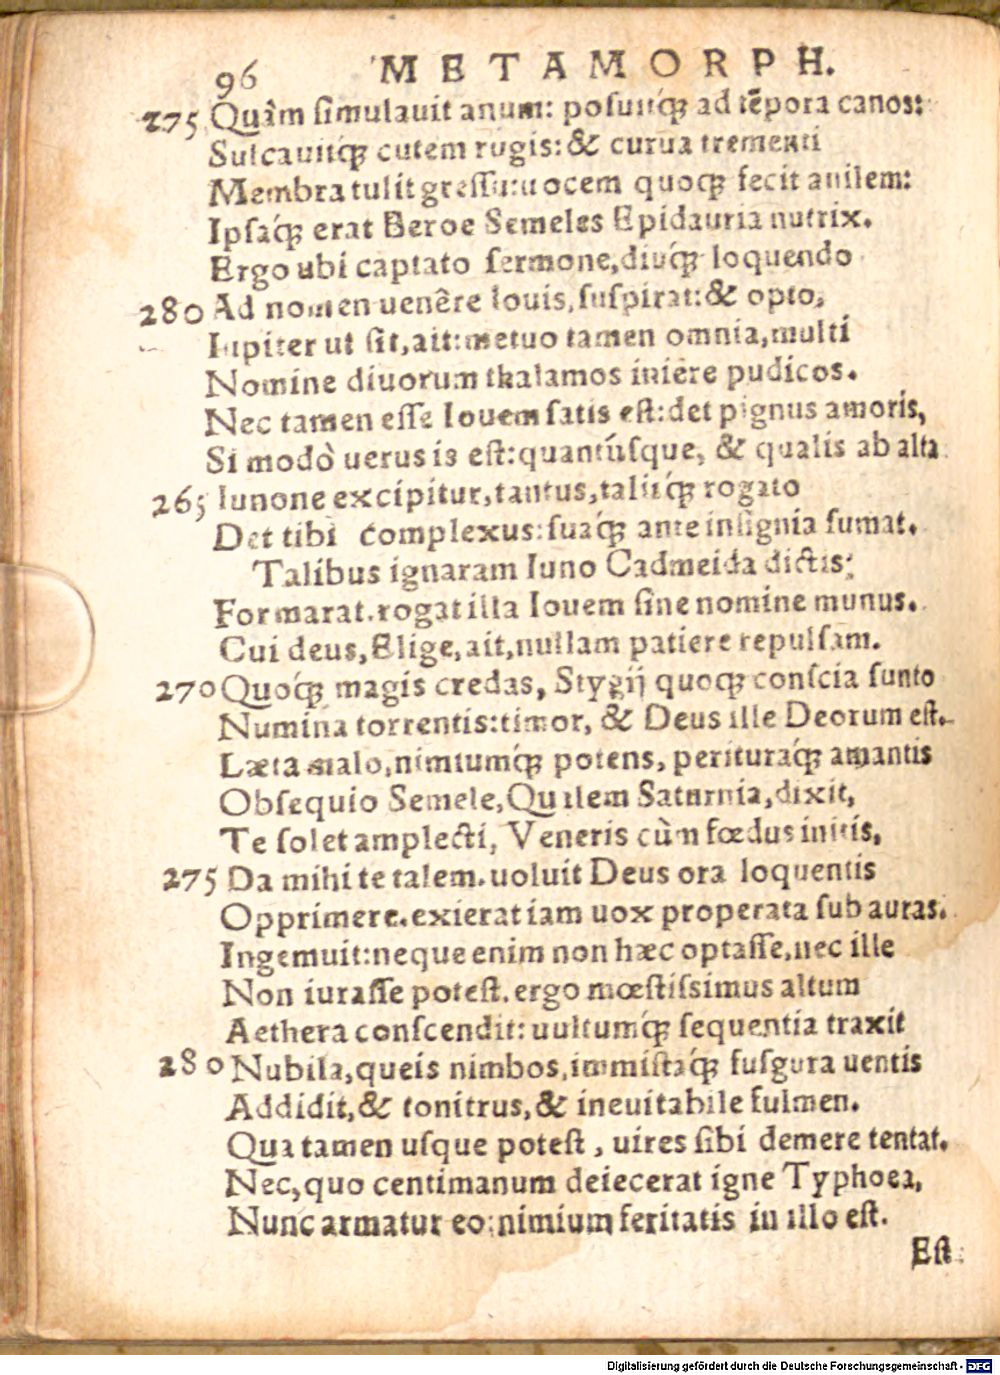 96 METAMORPH.
275 Quàm simulauit anum: posuitq́; ad tẽpora canos:
Sulcauitq́; cutem rugis: & curua trementi
Membra tulit gressu: uocem quoq; fecit anilem:
Ipsaq́; erat Beroe Semeles Epidauria nutrix.
Ergo ubi captato sermone, diuq́; loquendo
280 Ad nomen uenêre Iouis, suspirat: & opto,
Iupiter ut sit, ait: metuo tamen omnia, multi
Nomine diuorum thalamos iniêre pudicos.
Nec tamen esse Iouem satis est: det pignus amoris,
Si modò uerus is est: quantúsque, & qualis ab alta
265 Iunone excipitur, tantus, talisq́; rogato
Det tibi complexus: suaq́; ante insignia sumat.
Talibus ignaram Iuno Cadmeida dictis;
Formarat. rogat illa Iouem sine nomine munus.
Cui deus, Elige, ait, nullam patiere repulsam.
270 Quoq́; magis credas, Stygij quoq; conscia sunto
Numina torrentis: timor, & Deus ille Deorum est.
Læta malo, nimiumq́; potens, perituraq́; amantis
Obsequio Semele, Qualem Saturnia, dixit,
Te solet amplecti, Veneris cùm fœdus initis,
275 Da mihi te talem. uoluit Deus ora loquentis
Opprimere. exierat iam uox properata sub auras.
Ingemuit: neque enim non hæc optasse, nec ille
Non iurasse potest. ergo mœstissimus altum
Aethera conscendit: uultumq́; sequentia traxit
280 Nubila, queis nimbos, immistaq́; fulgura uentis
Addidit, & tonitrus, & ineuitabile fulmen.
Qua tamen usque potest, uires sibi demere tentat.
Nec, quo centimanum deiecerat igne Typhoea,
Nunc armatur eo: nimium feritatis in illo est.
Est
Digitalisierung gefördert durch die Deutsche Forschungsgemeinschaft - DFG